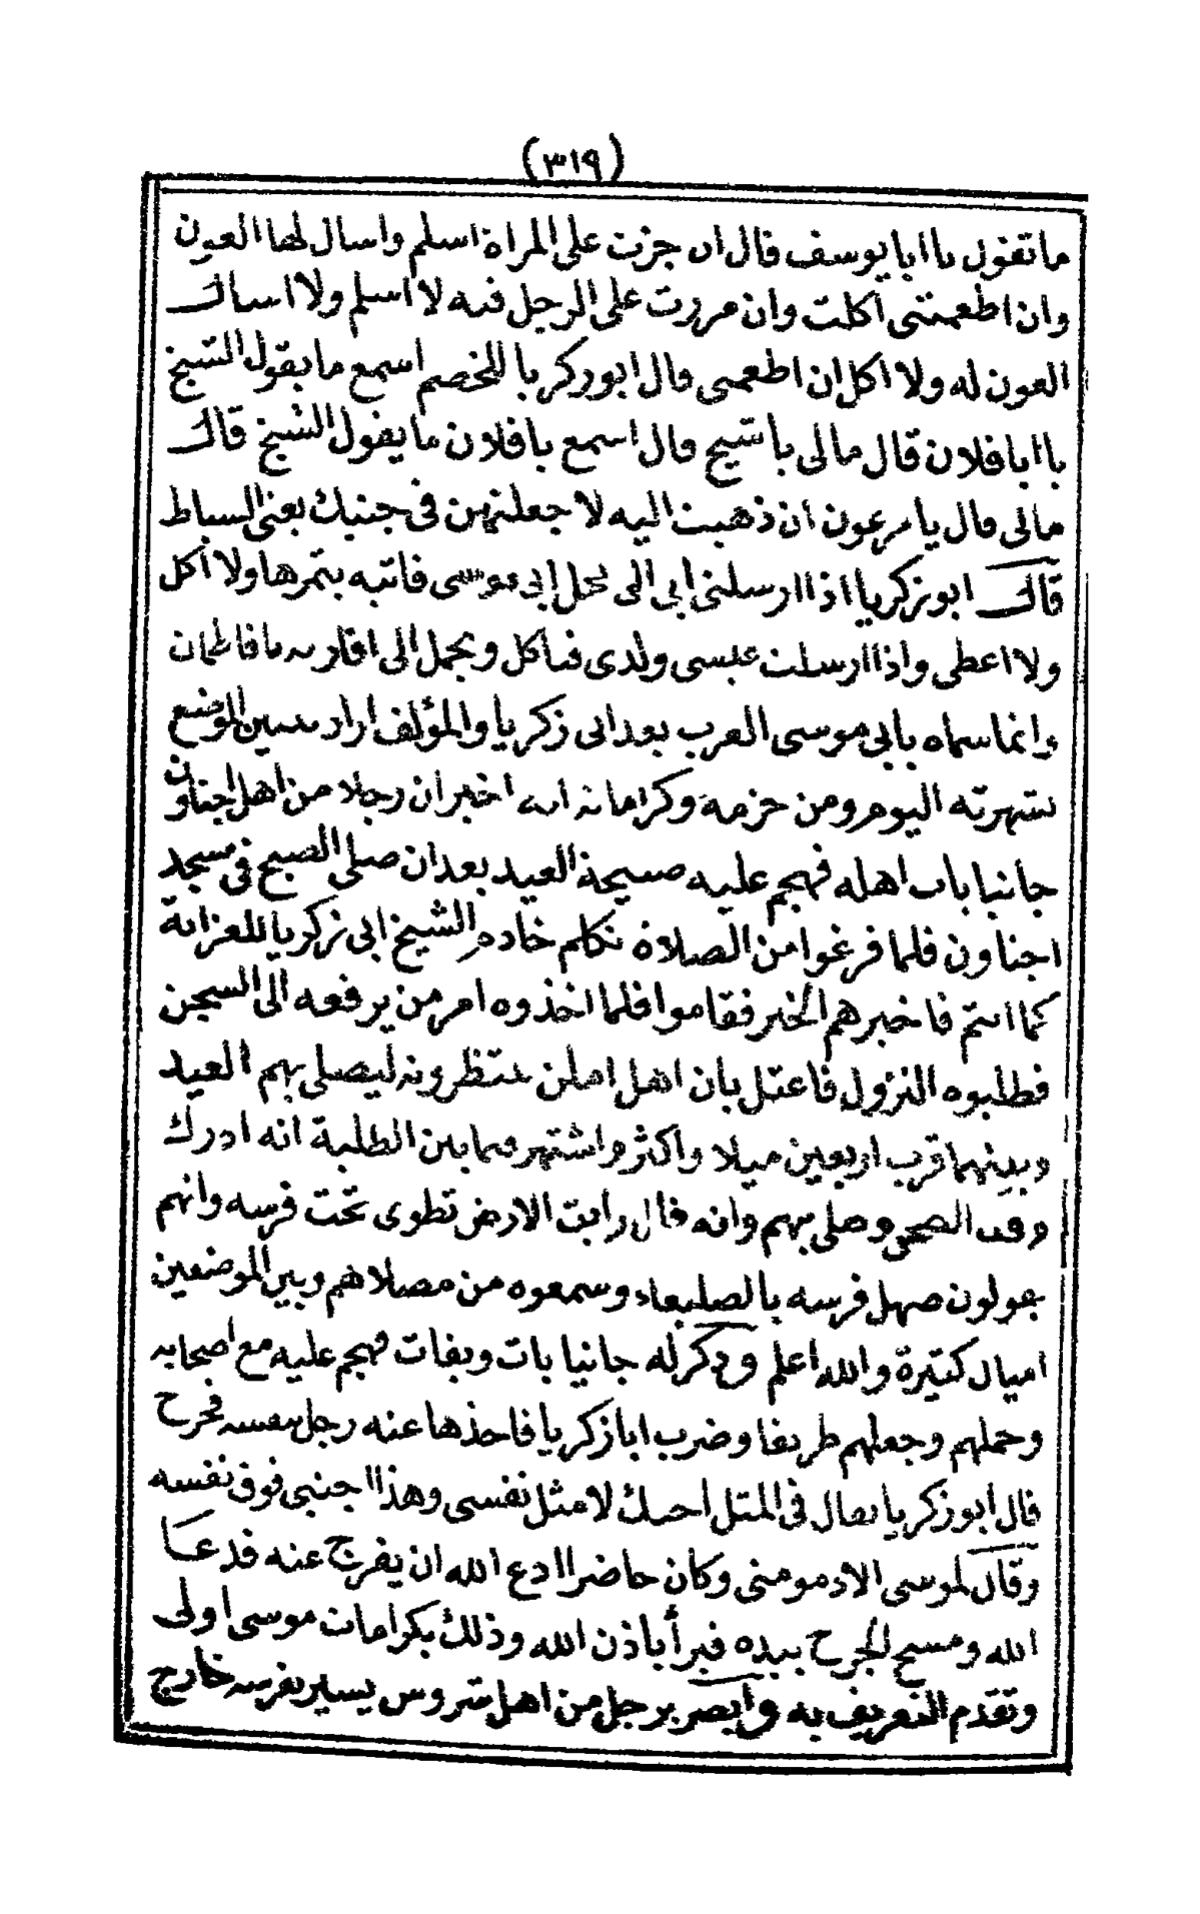 (٣١٩)
ما تقول يا ابا يوسف قال ان جزت على المراة اسلم واسال لها العون
وان اطعمتنى اكلت وان مررت على الرجل فيه لا اسلم ولا اسال
العون له ولا اكل ان اطعمنى قال ابو زكريا للخصم اسمع ما يقول الشيخ
يا ابا فلان قال مالى يا شيخ قال اسمع يا فلان ما يقول الشيخ قال
مالى قال يا مرعون ان ذهبت اليه لا جعلتهن فى جنبيك يعنى السياط
قال ابو زكريا اذا ارسلنى ابى الى نخل ابى موسى فاتيه بتمرها ولا اكل
ولا اعطى واذا ارسلت عيسى ولدى فياكل ويحمل الى اقاربه ما فاطمان
وانما سماه بابى موسى العرب بعد ابى زكريا والمؤلف اراد تبيين الموضع
بشهرته اليوم ومن حزمه وكراماته انه اخبر ان رجلا من اهل اجناون
جانيا بات اهله فهجم عليه صبيحة العيد بعد ان صلى الصبح فى مسجد
اجناون فلما فرغوا من الصلاة تكلم خادم الشيخ ابى زكريا للعزابة
كما انتم فاخبرهم الخبر فقاموا فلما اخذوه امر من يرفعه الى السجن
فطلبوه النزول فاعتل بان اهل املن ينتظرونه ليصلى بهم العيد
وبينهما قرب اربعين ميلا واكثر واشتهر فيما بين الطلبة انه ادرك
وقت الضحى وصلى بهم وانه قال رايت الارض تطوى تحت فرسه وانهم
يقولون صهل فرسه بالصلبعاء وسمعوه من مصلاهم وبين الموضعين
اميال كثيرة والله اعلم وذكر له جانيا بات وبفات فهجم عليه مع اصحابه
وحملهم وجعلهم طريقا وضرب ابا زكريا فاخذها عنه رجل بنفسه فجرح
قال ابو زكريا يقال فى المثل احبك لا مثل نفسى وهذا اجنبى فوق نفسه
وقال لموسى الادمومنى وكان حاضرا ادع الله ان يفرج عنه فدعا
الله ومسح الجرح بيده فبرأ باذن الله وذلك بكرامات موسى اولى
وتقدم التعريف به وابصر برجل من اهل شروس يسير بفرسه خارج